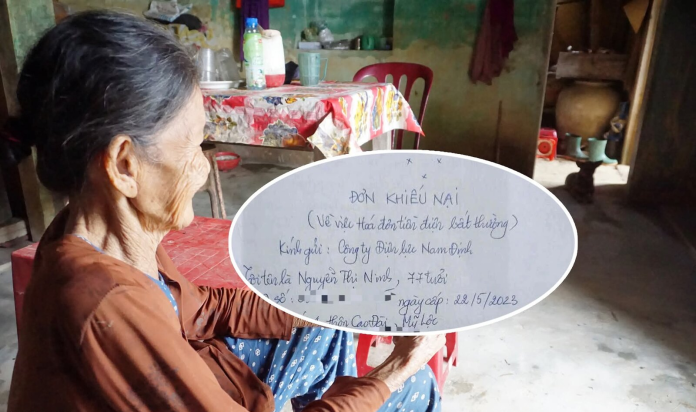 ĐƠN KHIẾU NẠI
(Về việc Hoá đơn tiền điện bất thường)
Kính gửi: Công ty Điện lực Nam Định
Tôi tên là Nguyễn Thị Ninh, 77 tuổi
số: ngày cấp: 22/5/2023
thôn Cao Đài, Mỹ Lộc